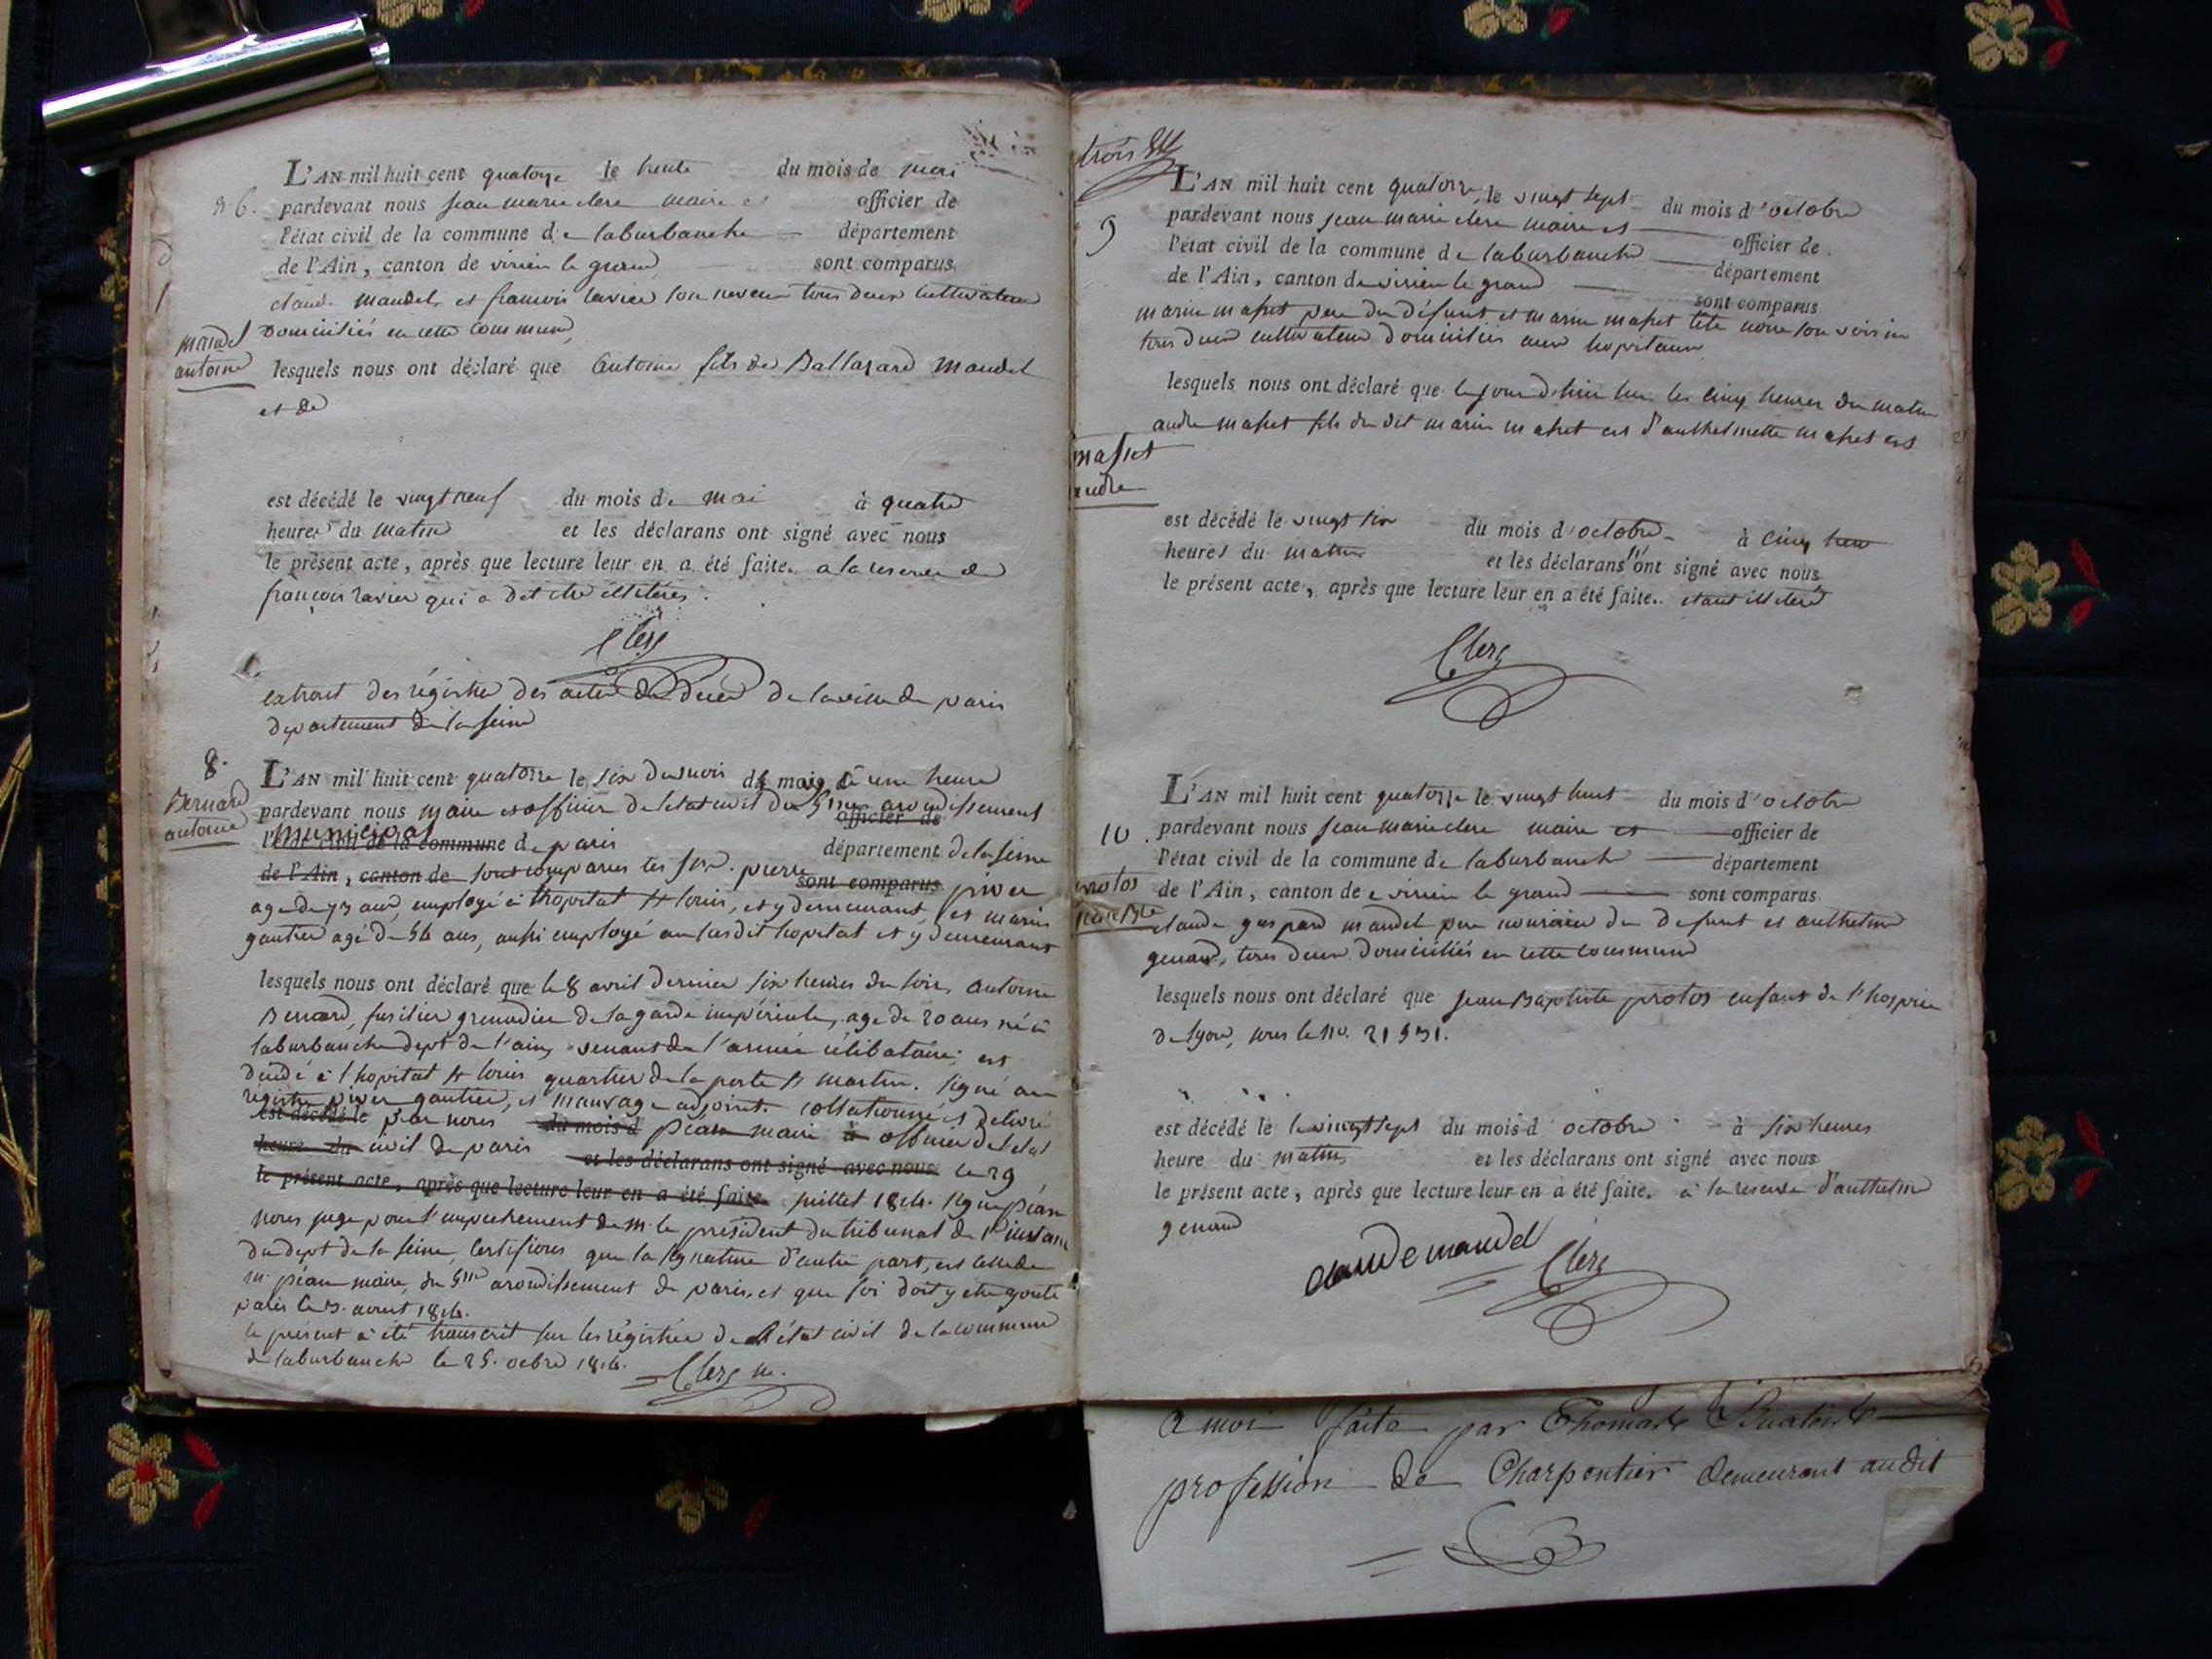 L'AN mil huit cent quatorze le trente du mois de mai
6. pardevant nous jean marie clerc maire et officier de
l'état civil de la commune de laburbanche département
de l'Ain, canton de virieu le grand sont comparus
claude mandel et francois ravier son neveu tous deux cultivateurs
domiciliés en cette commune
mandel
antoine
lesquels nous ont déclaré que antoine fils de Baltazard mandel
et de
est décédé le vingt neuf du mois de mai à quatre
heures du matin et les déclarans ont signé avec nous
le présent acte, après que lecture leur en a été faite. a la reserve de
françois ravier qui a dit etre illitéres.
Clerc
extrait des régistre des actes de décès de la ville de paris
departement de la seine
8.
Bernard
antoine
L'AN mil huit cent quatorze le six du mois de mai à une heure
pardevant nous maire et officier de letat civil du 5me arondissement
officier de
municipal
l'état civil de la commune de paris département de la seine
de l'Ain, canton de sont comparus les srs. pierre sont comparus piver
age de 73 ans, employé à l'hopital st louis, et y demeurant, et marin
gautier agé de 54 ans, aussi employé au susdit hopital et y demeurant
lesquels nous ont déclaré que le 8 avril dernier six heures du soir, antoine
Bernard, fusilier grenadier de la garde impériale, age de 20 ans né à
laburbanche dept de l'ain, venant de l'armée célibataire; est
décédé à l'hopital st louis quartier de la porte st martin. signé au
régistre piver gautier, et mauvage adjoint. collationné et delivré
est décédé le par nous du mois d péan maire à officier de letat
heure du civil de paris et les déclarans ont signé avec nous le 29
le présent acte, après que lecture leur en a été faite. juillet 1814. signé péan
nous juge pour l'empechement de m. le président du tribunal de 1re instance
du dept de la seine, certifions que la signature d'autre part, est celle de
m. péan maire, du 5me arondissement de paris, et que foi doit y etre ajouté
paris le 3. aout 1814.
le présent a été transcrit sur les régistres de l'état civil de la commune
de laburbanche le 25. octbre 1814. Clerc m.
trois
L'AN mil huit cent quatorze le vingt sept du mois d'octobre
9
pardevant nous jean marie clerc maire et officier de
l'état civil de la commune de laburbanche département
de l'Ain, canton de virieu le grand sont comparus
marin masset pere du défunt et marin masset tête noire son voisin
tous deux cultivateurs domiciliés aux hopitaux
lesquels nous ont déclaré que le jour d'hier sur les cinq heures du matin
andre masset fils du dit marin masset et d'anthelmette masset est
masset
andre
est décédé le vingt six du mois d'octobre à cinq heure
heures du matin et les déclarans ont signé avec nous
le présent acte, après que lecture leur en a été faite. étant illiteré
Clerc
L'AN mil huit cent quatorze le vingt huit du mois d'octobre
10. pardevant nous jean marie clerc maire et officier de
l'état civil de la commune de laburbanche département
protos
jean Bte
de l'Ain, canton de virieu le grand sont comparus
claude gaspard mandel pere nouricier du defunt et anthelme
genand, tous deux domiciliés en cette commune
lesquels nous ont déclaré que jean Baptiste protos enfant de l'hospice
de lyon, sous le no. 21931.
est décédé le le vingt sept du mois d octobre à six heures
heure du matin et les déclarans ont signé avec nous
le présent acte, après que lecture leur en a été faite. à la reserve d'anthelme
genand
claude mandel Clerc
a moi faite par Thomas
profession de Charpentier demeurant audit